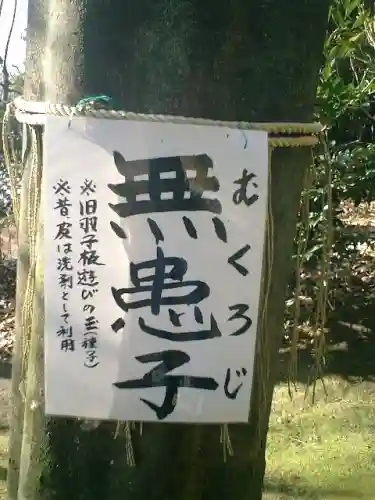 むくろじ
無患子
※旧羽子板遊びの玉(種子)
※昔、実は洗剤として利用